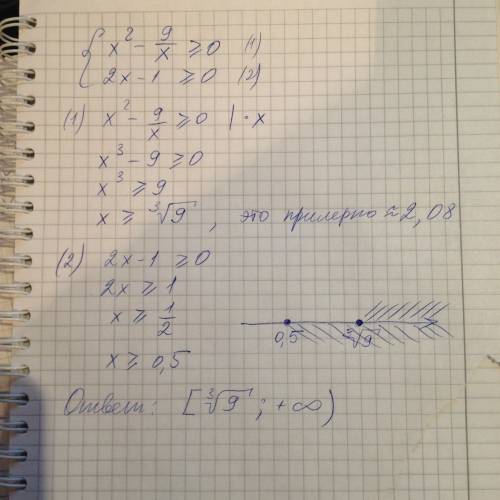 { x² - 9/x ≥ 0 (1)
2x - 1 ≥ 0 (2)
(1) x² - 9/x ≥ 0 | · x
x³ - 9 ≥ 0
x³ ≥ 9
x ≥ ∛9 , это примерно ≈ 2,08
(2) 2x - 1 ≥ 0
2x ≥ 1
x ≥ 1/2
x ≥ 0,5
0,5 ∛9
Ответ: [∛9 ; +∞)